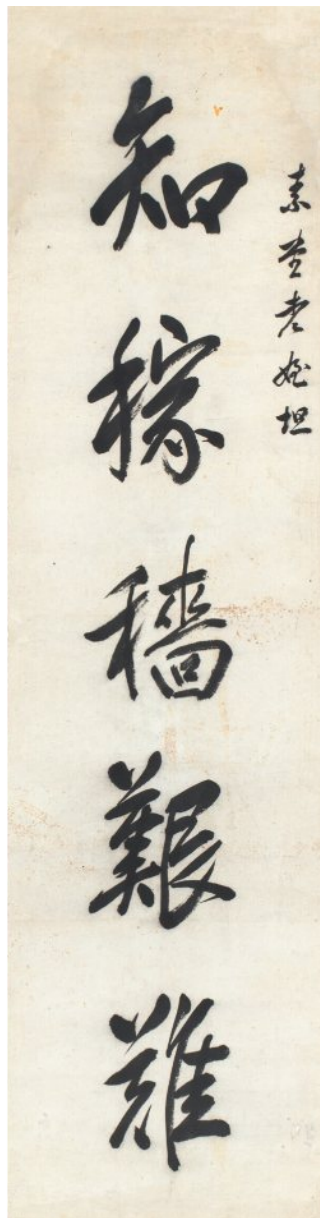 素堂老姪坦
知稼穡艱難